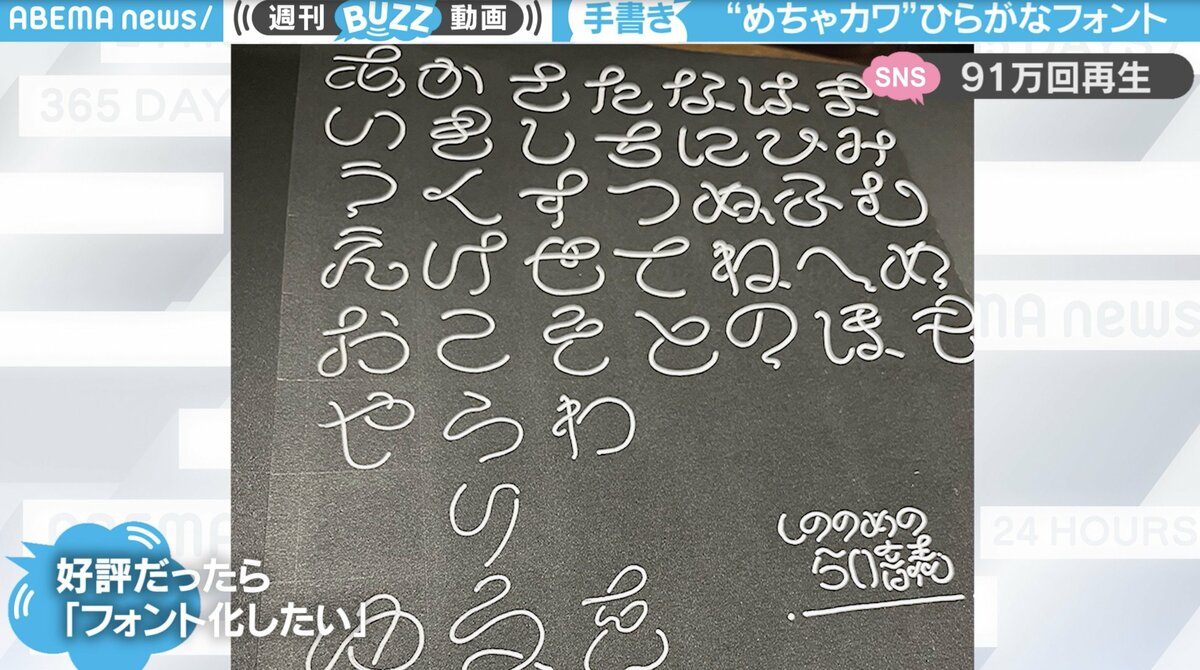 ABEMA news/ 週刊 BUZZ 動画 手書き “めちゃカワ”ひらがなフォント
SNS 91万回再生
365 DAY
あかさたなはま
いきしちにひみ
うくすつぬふむ
えけせてねへめ
MA news
おこそとのほも
やらわ
り
しののめの
50音
24 HOURS
ゆるを
好評だったら
「フォント化したい」